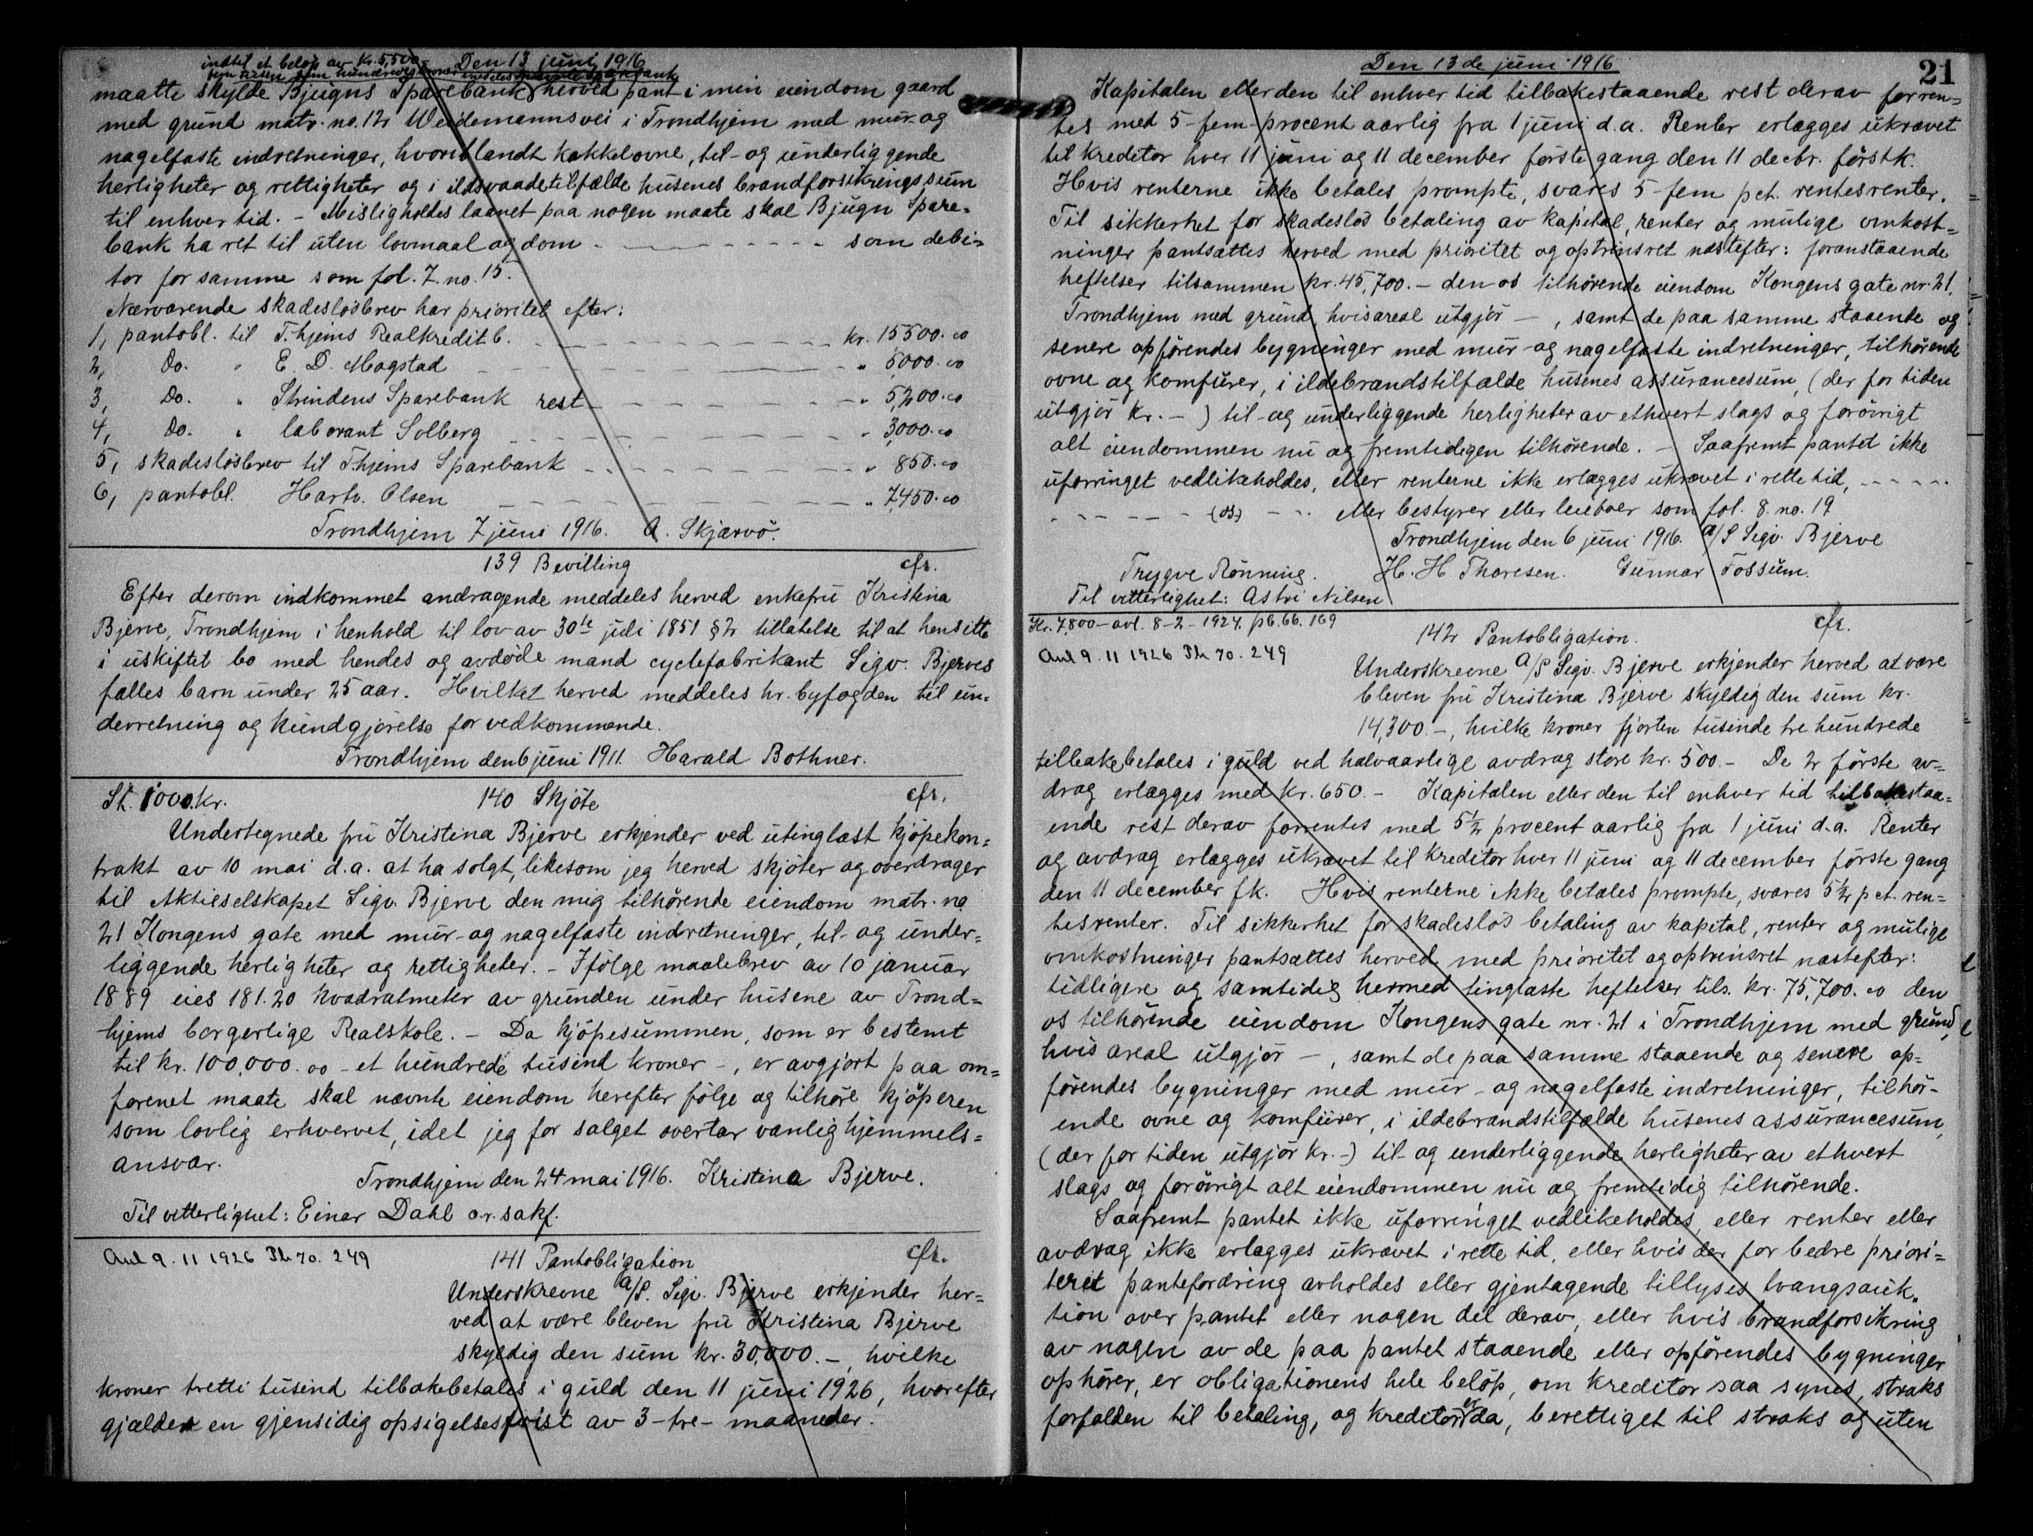 Den 13 juni 1916
indtil et beløp av kr. 5,500.-
fem tusen fem hundrede kroner
maatte skylde Bjugns Sparebank herved pant i min eiendom gaard
med grund matr. no. 12 Weidemannsvei i Trondhjem med mur- og
nagelfaste indretninger, hvoriblandt kakkelovne, til- og underliggende
herligheter og rettigheter og i ildsvaadetilfælde husenes brandforsikringssum
til enhver tid. - Misligholdes laanet paa nogen maate skal Bjugn Spare-
bank ha ret til uten lovmaal og dom - - - - som debi-
tor for samme som fol. 7. no. 15.
Nærværende skadesløsbrev har prioritet efter:
1, pantobl. til T.hjems Realkreditb. kr. 15500.00
2, Do. " E. D. Mogstad " 5000.00
3, Do. " Strindens Sparebank rest " 5,200.00
4, Do. " laborant Solberg " 3,000.00
5, skadesløsbrev til T.hjems Sparebank " 850.00
6, pantobl. Hartv. Olsen " 7,450.00
Trondhjem 7 juni 1916. A. Skjærvö.
139 Bevilling cfr.
Efter derom indkommet andragende meddeles herved enkefru Kristina
Bjerve, Trondhjem i henhold til lov av 30te juli 1851 § 2 tillatelse til at hensitte
i uskiftet bo med hendes og avdöde mand cyclefabrikant Sigv. Bjerves
fælles barn under 25 aar. Hvilket herved meddeles hr. byfogden til un-
derretning og kundgjörelse for vedkommende.
Trondhjem den 6 juni 1911. Harald Bothner.
St. 1000 kr. 140 Skjöte cfr.
Undertegnede fru Kristina Bjerve erkjender ved utinglæst kjöpekon-
trakt av 10 mai d.a. at ha solgt, likesom jeg herved skjöter og overdrager
til Aktieselskapet Sigv. Bjerve den mig tilhörende eiendom matr. no
21 Kongens gate med mur- og nagelfaste indretninger, til- og under-
liggende herligheter og rettigheter. - Ifölge maalebrev av 10 januar
1889 eies 181.20 kvadratmeter av grunden under husene av Trond-
hjems borgerlige Realskole. - Da kjöpesummen, som er bestemt
til kr. 100,000.00 - et hundrede tusind kroner -, er avgjort paa om-
forenet maate skal nævnte eiendom herefter fölge og tilhöre kjöperen
som lovlig erhvervet, idet jeg for salget overtar vanlig hjemmels-
ansvar.
Trondhjem den 24 mai 1916. Kristina Bjerve.
Til vitterlighet: Einar Dahl o.r.sakf.
Avl 9.11 1926 Pb 70. 249 141 Pantobligation cfr.
Underskrevne A/S. Sigv. Bjerve erkjender her-
ved at være bleven fru Kristina Bjerve
skyldig den sum kr. 30,000. -, hvilke
kroner tretti tusind tilbakebetales i guld den 11 juni 1926, hvorefter
gjælder en gjensidig opsigelsesfrist av 3 - tre - maaneder.
Den 13 de juni 1916
21
Kapitalen eller den til enhver tid tilbakestaaende rest derav forren-
tes med 5 - fem - procent aarlig fra 1 juni d.a. Renter erlægges ukrævet
til kreditor hver 11 juni og 11 december förste gang den 11 decbr. förstk.
Hvis renterne ikke betales prompte, svares 5 - fem pct. rentesrenter.
Til sikkerhet for skadeslös betaling av kapital, renter og mulige omkost-
ninger pantsættes herved med prioritet og optrinsret næstefter: foranstaaende
heftelser tilsammen kr. 45,700. - den os tilhörende eiendom Kongens gate nr. 21,
Trondhjem med grund hvis areal utgjör -, samt de paa samme staaende og
senere opförendes bygninger med mur- og nagelfaste indretninger, tilhörende
ovne og komfurer, i ildebrandstilfælde husenes assurancesum, (der for tiden
utgjör kr. - ) til- og underliggende herligheter av ethvert slags og forövrigt
alt eiendommen nu og fremtidigen tilhörende. - Saafremt pantet ikke
uforringet vedlikeholdes, eller renterne ikke erlægges ukrævet i rette tid, - - - -
- - - - (os) - - - eller bestyrer eller leieboer som fol. 8. no. 19
Trondhjem den 6 juni 1916. A/S Sigv. Bjerve
Trygve Rönning. H. H. Thoresen. Gunnar Fossum.
Til vitterlighet: Astri Nilsen
Kr. 7,800 - avl. 8-2-1927. pb. 66. 169
Avl 9.11 1926 Pb 70. 249 142 Pantobligation. cfr.
Underskrevne A/S Sigv. Bjerve erkjender herved at være
bleven fru Kristina Bjerve skyldig den sum kr.
14,300. -, hvilke kroner fjorten tusinde tre hundrede
tilbakebetales i guld ved halvaarlige avdrag store kr. 500. - De 2 förste av-
drag erlægges med kr. 650. - Kapitalen eller den til enhver tid tilbakestaa-
ende rest derav forrentes med 5 1/2 procent aarlig fra 1 juni d.a. Renter
og avdrag erlægges ukrævet til kreditor hver 11 juni og 11 december förste gang
den 11 december f.k. Hvis renterne ikke betales prompte, svares 5 1/2 pct. ren-
tesrenter. Til sikkerhet for skadeslös betaling av kapital, renter og mulige
omkostninger pantsættes herved med prioritet og optrinsret næstefter:
tidligere og samtidig hermed tinglæste heftelser tils. kr. 75,700.00 den
os tilhörende eiendom Kongens gate nr. 21 i Trondhjem med grund,
hvis areal utgjör -, samt de paa samme staaende og senere op-
förendes bygninger med mur- og nagelfaste indretninger, tilhör-
ende ovne og komfurer, i ildebrandstilfælde husenes assurancesum,
(der for tiden utgjör kr. -) til- og underliggende herligheter av ethvert
slags og forövrigt alt eiendommen nu og fremtidig tilhörende.
Saafremt pantet ikke uforringet vedlikeholdes, eller renter eller
avdrag ikke erlægges ukrævet i rette tid, eller hvis der for bedre priori-
teret pantefordring avholdes eller gjentagende tillyses tvangsauk-
tion over pantet eller nogen del derav, eller hvis brandforsikring
av nogen av de paa pantet staaende eller opförendes bygninger
ophörer, er obligationens hele belöp, om kreditor saa synes, straks
forfalden til betaling, og kreditor er da, berettiget til straks og uten